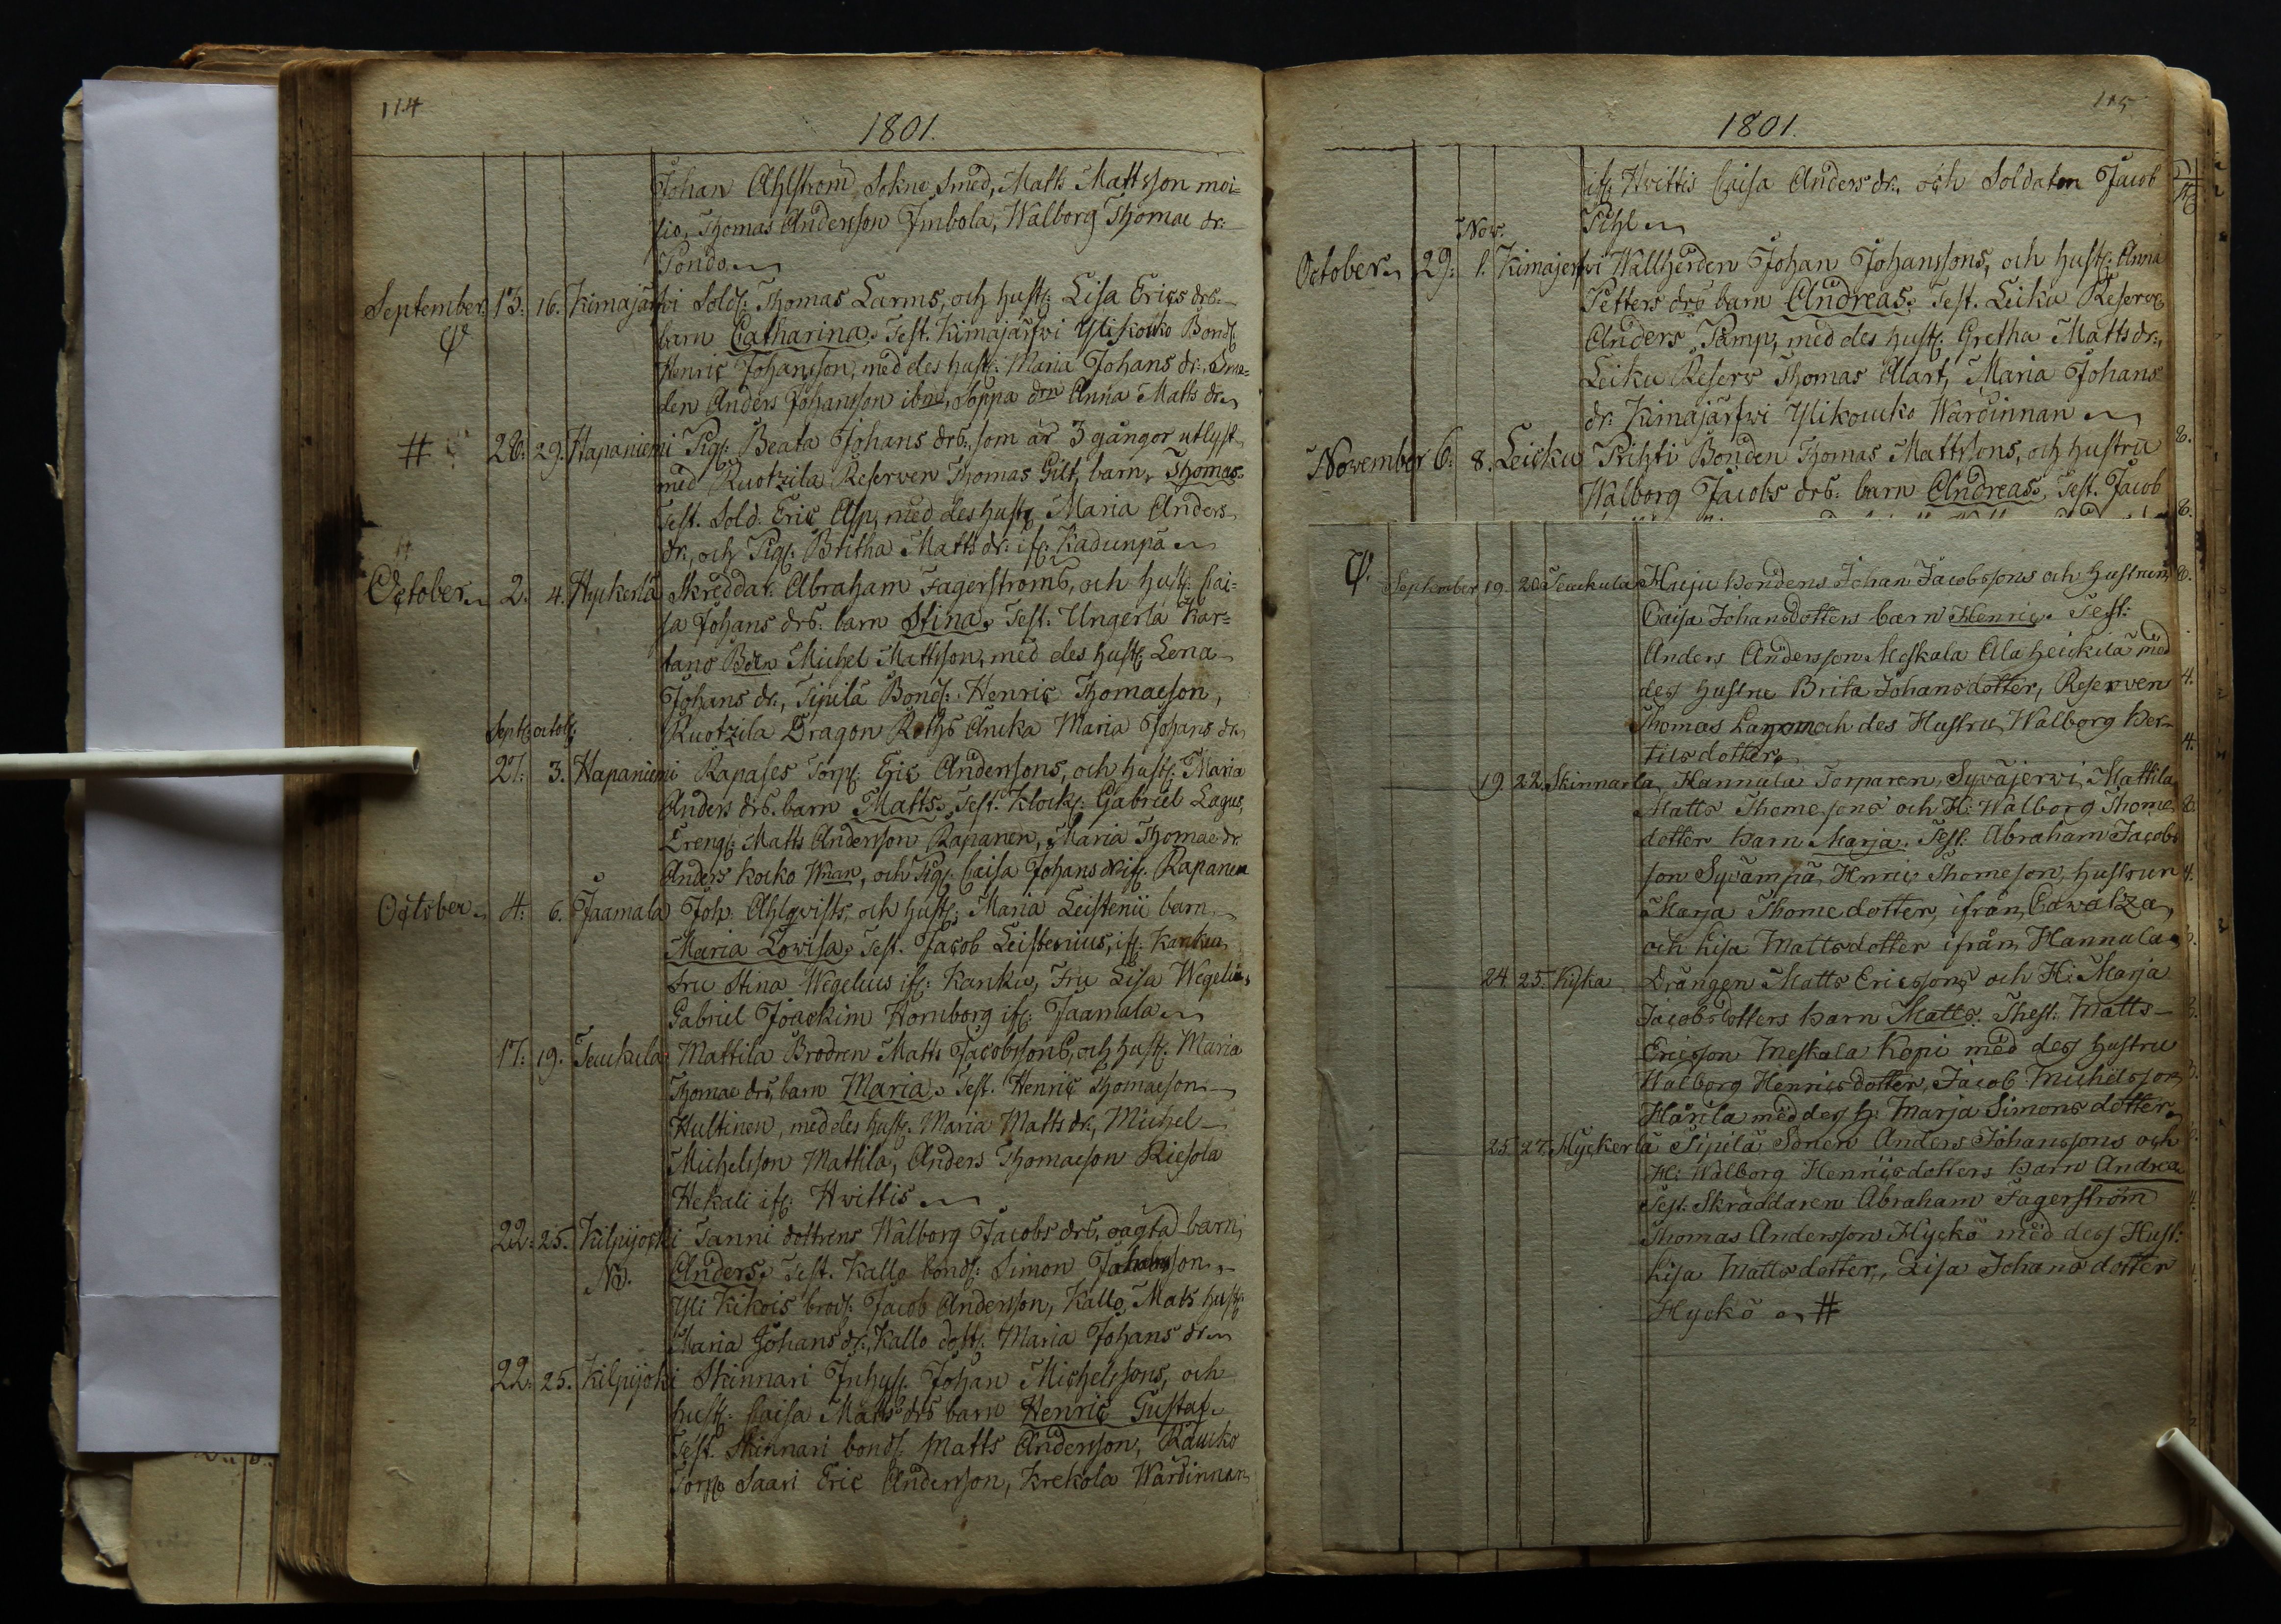 114
1801.
Johan Ahlström Sokne Smed, Matts Mattsson moi-
sio, Thomas Andersson Jmbola, Walborg Thomae dr.
Pondo
September. 13. 16. Kimajärfwi Sold: Thomas Larms, och hust: Lisa Erics drs.
barn Catharina. Test. Kimajärfwi Ylikouko Bond:
Henric Johansson, med des hust: Maria Johans dr., Sme-
den Anders Johansson ibm, Soppa Anna Matts dr
# 28. 29. Hapaniemi Pig: Beata Johans drs., som är 3 gångor utlyst
med Ruotzila Reserven Thomas Gilt, barn, Thomas.
Test. Sold. Eric Asp, med des hust: Maria Anders
dr., och Pig: Britha Matts dr. if: Kadunpä
October 2. 4. Hyckerlä Skreddar. Abraham Fagerströms, och hust: Cai-
sa Johans drs. barn Stina. Test. Ungerla Kar-
tano Michel Mattsson, med des hust: Lena
Johans dr., Sipilä Bond: Henric Thomaeson,
Sept: octob: Ruotzila Dragon Roths Äncka Maria Johans dr
27. 3. Hapaniemi Rapases Torp: Eric Anderssons, och hust: Maria
Anders drs. barn Matts. Test. Klock: Gabriel Lagus,
Dreng: Matts Andersson Rapanen, Maria Thomae dr.
Anders Kocko, och Pig: Caisa Johans dr if: Rapanen
October 4. 6. Jaamala Joh. Ahlqwists, och hust: Maria Leistenii barn
Maria Lowisa. Test. Jacob Leistenius, if: Kanku,
Fru Stina Wegelius if: Kanku, Fru Lisa Wegelius,
Gabriel Joackim Hornborg if: Jaamala
17. 19. Teuckula Mattila Brodren Matts Jacobssons, och hust: Maria
Thomae drs, barn Maria. Test. Henric Thomaeson
Hultinen, med des hust: Maria Matts dr., Michel
Michelsson Mattila, Anders Thomaeson Riesola
Hekali if: Hwittis
22. 25. Kilpijocki Tanni dottrens Walborg Jacobs drs, oägta barn,
Anders. Test. Kallo bond: Simon
Yli Kikois brod: Jacob Andersson, Kallo, Mats hust:
Maria Johans dr., Kallo dott: Maria Johans dr
22. 25. Kilpijoki Skinnari Inhys: Johan Michelssons, och
hust: Caisa Matts drs barn Henric Gustaf.
Test. Skinnari bond: Matts Andersson, Raucko
Torp: Saari Eric Andersson, Krekola Wärdinnan
1801.
if: Hwittis Caisa Anders dr., och Soldaten Jacob
Pihl
Nov.
October 29. 1. Kimajerfwi Wallherden Johan Johanssons, och hust: Anna
Petters drs barn Andreas. Test. Leiku Reserv
Anders Kamp, med des hust: Gretha Matts dr.,
Leiku Reserv Thomas Alart, Maria Johans
dr. Kimajärfwi Ylikoucko Wärdinnan
November 6. 8. Leicku Prihti Bonden Thomas Mattsons, och hustru
Walborg Jacobs drs. barn Andreas, Test. Jacob
September 19. 20 Teuckula Huju bondens Johan Jacobssons och hustrun
Caisa Johansdotters barn Henric. Test:
Anders Andersson Meskala Ala heickilä med
des hustru Brita Johansdotter, Reserven
Thomas och des Hustru Walborg Ber-
tils dotter
19 22. Skinnarla Hannula Torparen, Sywäjerwi, Mattila
Matts Thomesons och H: Walborg Thome
dotter barn Marja. Test: Abraham Jacobs
son Sywämpä, Henric Thomeson, hustrun
Marja Thomedotter, ifrån Cowalza,
och Lisa Mattsdotter ifrån Hannula
24 25. Kyka Drängen Matts Ericssons och H: Marja
Jacobsdotters barn Matts. Thest: Matts
Ericsson Meskala Kopi med des hustru
Walborg Henricsdotter, Jacob Michelsson
Härila med des h: Marja Simons dotter
25 27. Hyckerlä Sipilä Sonen Anders Johanssons och
H: Walborg Henricsdotters barn Andrea
Test: Skräddaren Abraham Fagerström
Thomas Andersson Hyckö med des Hust:
Lisa Mattsdotter, Lisa Johans dotter
Hyckö #